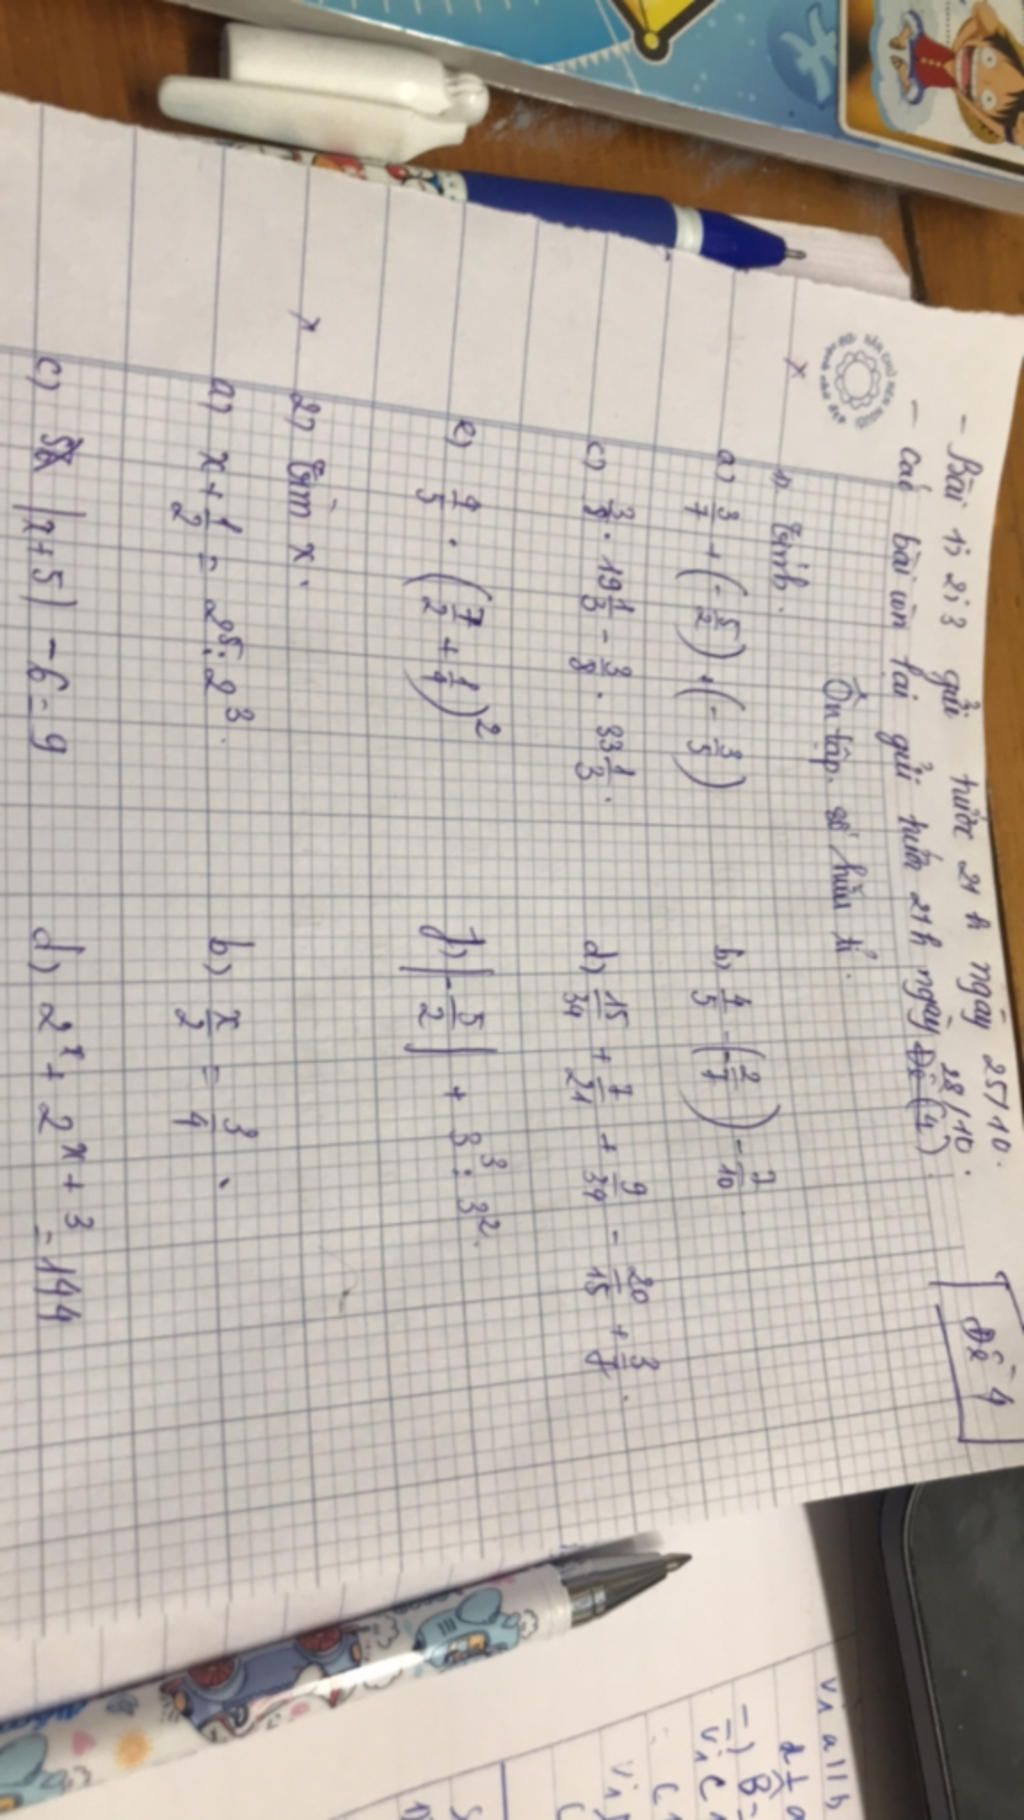 - Bài 1; 2; 3 gửi trước 21 h ngày 25/10.
- Các bài còn lại gửi trước 21h ngày 28/10. (Đề 4)
Đề 4
Ôn tập số hữu tỉ.
1) Tính.
a) 3/7 + (-5/2) + (-3/5)
b) 4/5 - (-2/7) - 7/10
c) 3/8 . 19 1/3 - 3/8 . 33 1/3.
d) 15/34 + 7/21 + 9/34 - 20/15 + 3/7.
e) 4/5 . (7/2 + 1/4)²
f) |-5/2| + 3³ : 3².
2) Tìm x.
a) x + 1/2 = 2⁵ : 2³.
b) x/2 = 3/4.
c) |x + 5| - 6 = 9
d) 2ˣ + 2ˣ⁺³ = 144